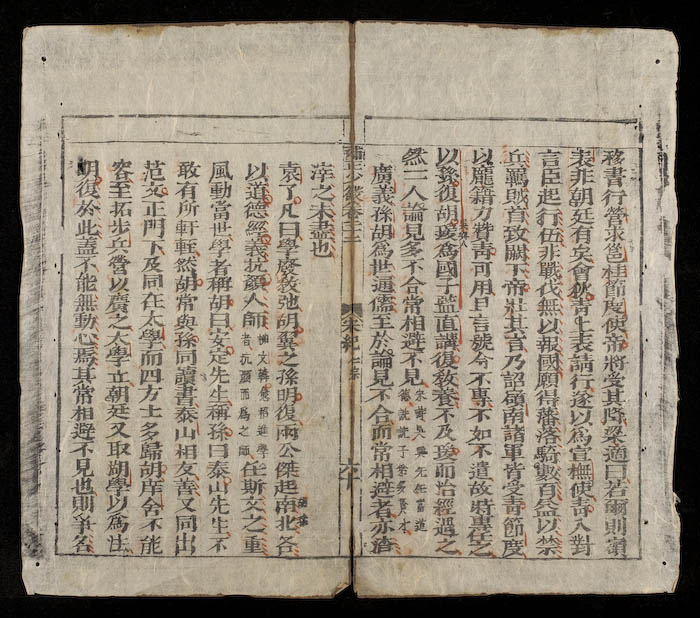 移書行營求邕桂節度使帝將受其降梁適曰若爾則嶺
表非朝廷有矣會狄青上表請行遂以為宣撫使青入對
言臣起行伍非戰伐無以報國願得蕃落騎數百益以禁
兵羈賊首致闕下帝壯其言乃詔嶺南諸軍皆受青節度
以龐籍力贊青可用且言號令不專不如不遣故將專任之
以孫復胡瑗為國子監直講復敎養不及瑗而治經過之
然二人論見多不合常相避不見
廣義孫胡為世通儒至於論見不合而常相避者亦渣
卷之二
宋紀 仁宗
滓之未盡也
袁了凡曰學廢敎弛胡翼之孫明復兩公傑起南北各
以道德經義抗顏人師 柳文韓愈招進學者抗顏而為之師 任斯文之重
風動當世學者稱胡曰安定先生稱孫曰泰山先生不
敢有所軒輊然胡常與孫同讀書泰山相友善又同出
范文正門下及同在太學而四方士多歸胡席舍不能
容至拓步兵營以廣之太學立朝廷又取胡學以為法
明復於此蓋不能無動心焉其常相避不見也則爭名